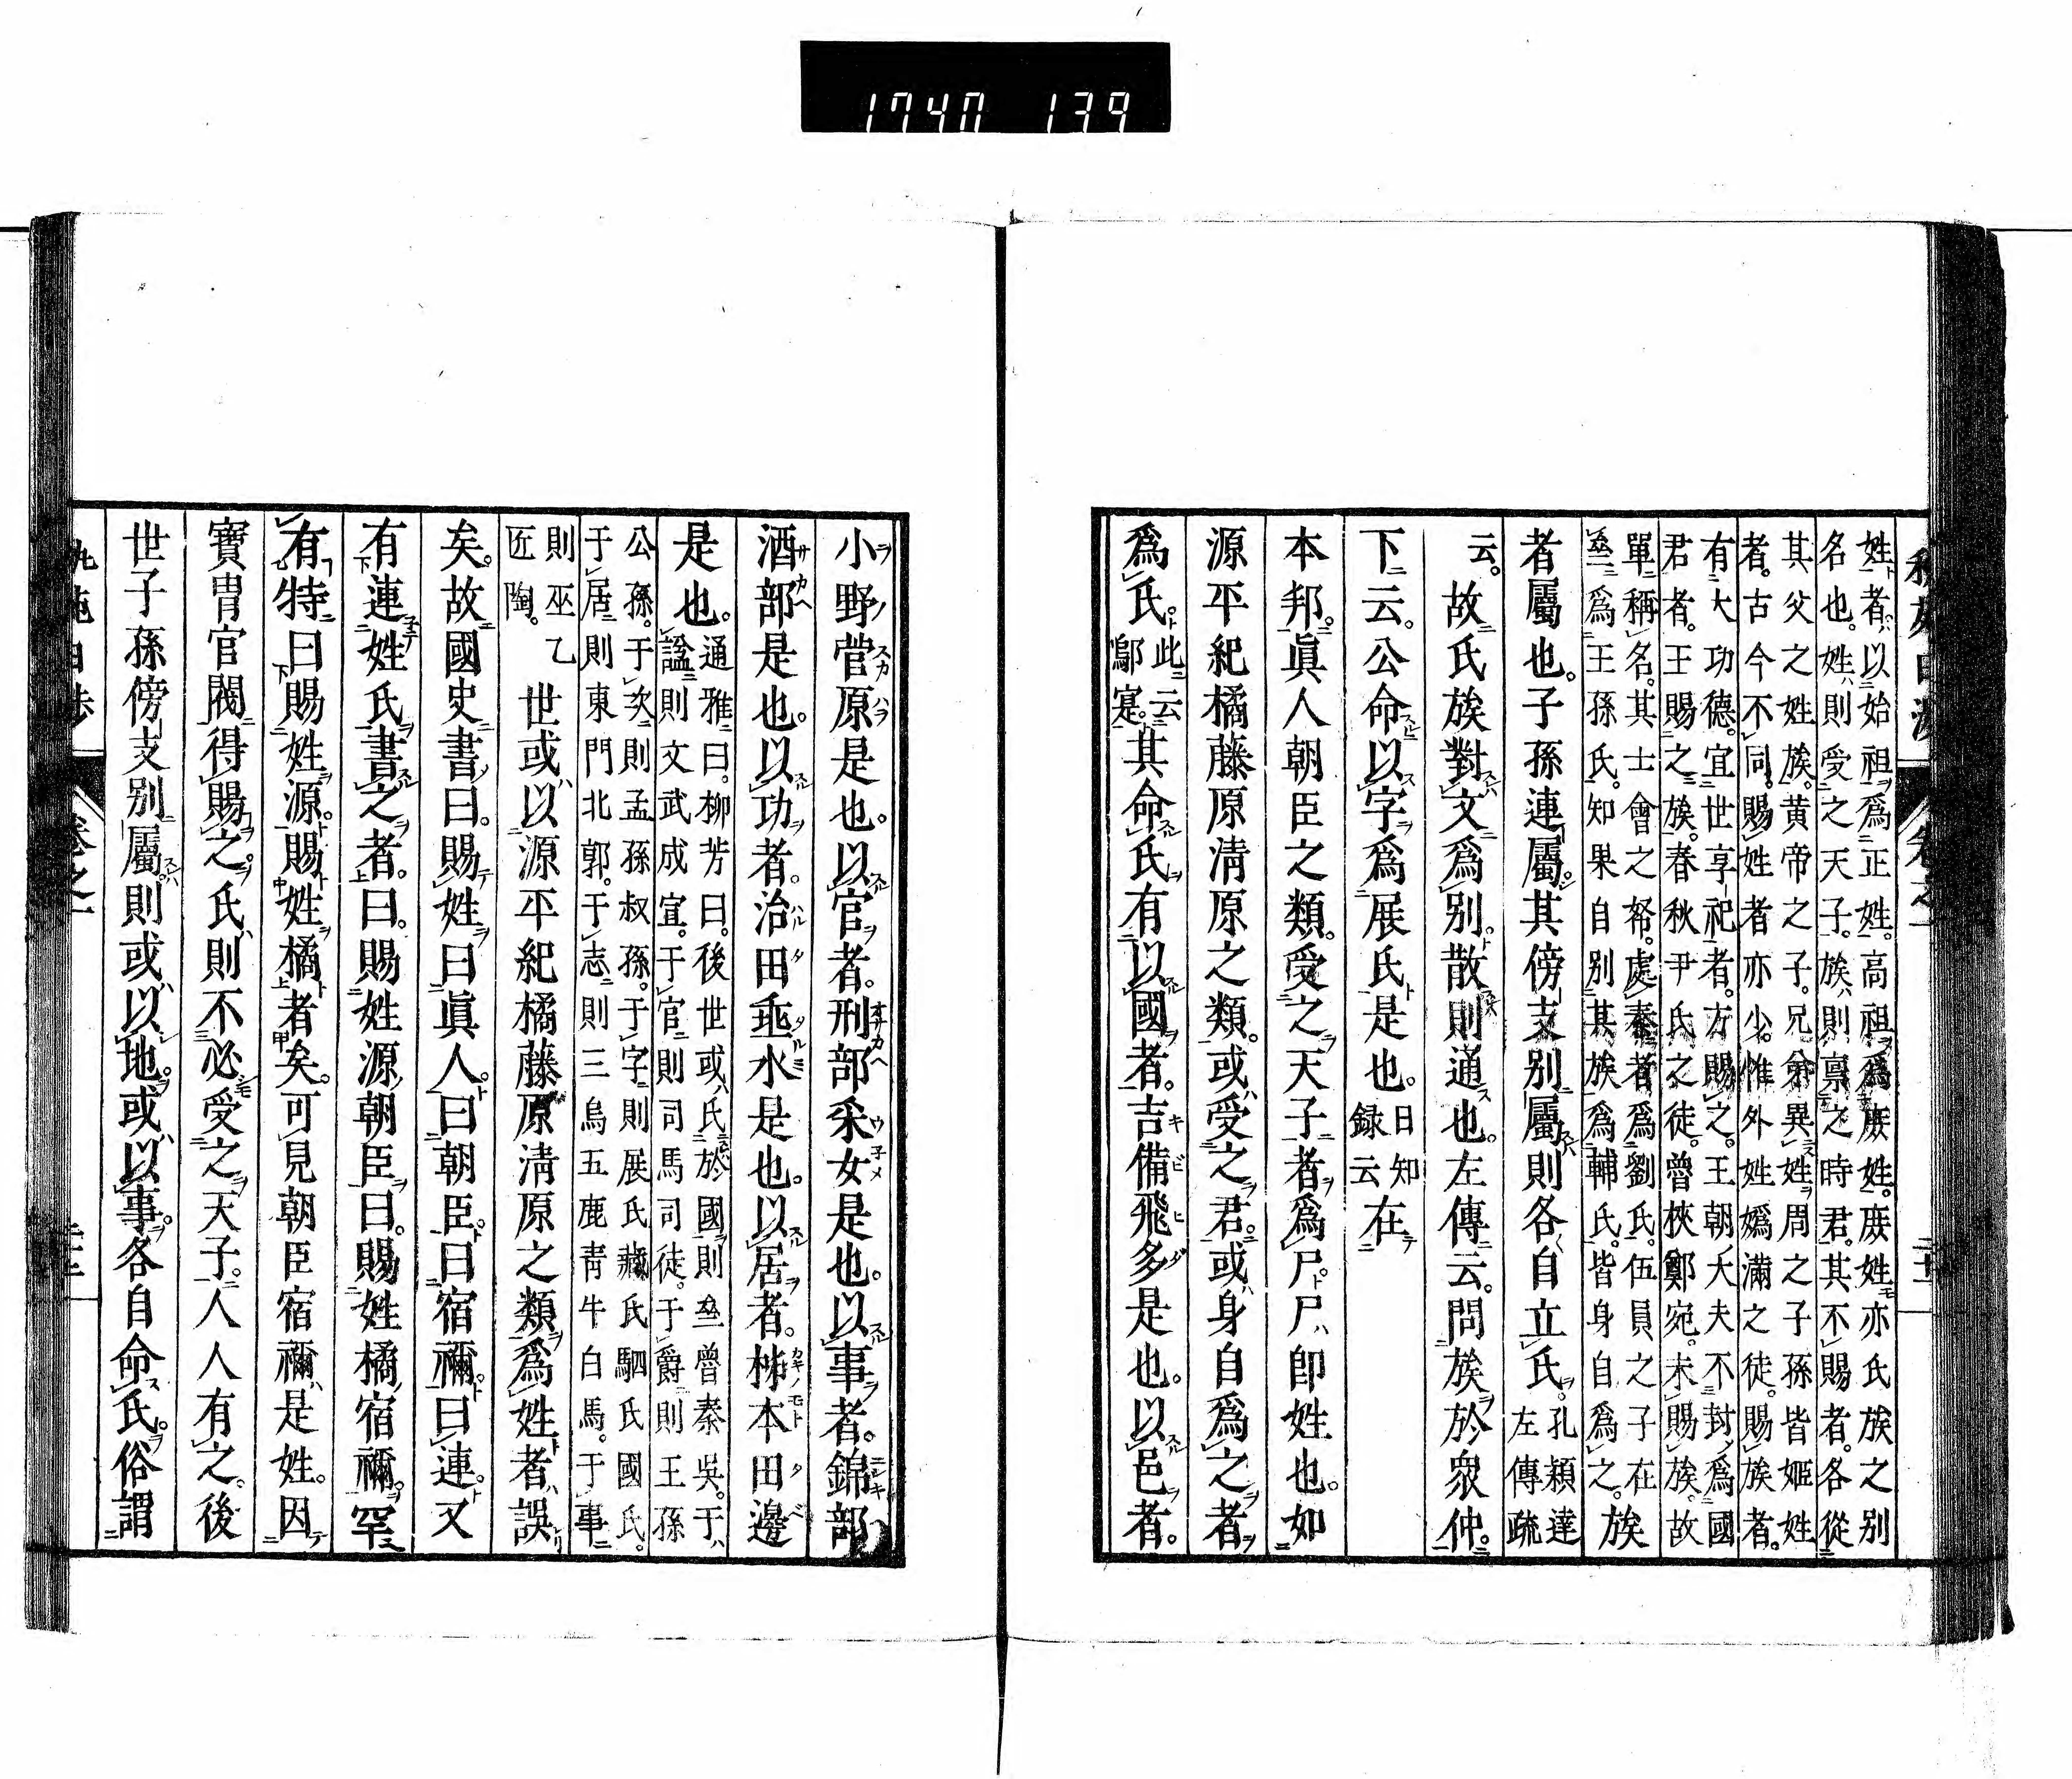 1740 139
姓者以始祖爲正姓高祖爲庶姓庶姓亦氏族之別
名也姓則受之天子族則稟之時君其不賜者各從
其父之姓族黃帝之子兄弟異姓周之子孫皆姬姓
者古今不同賜姓者亦少惟外姓嬀滿之徒賜族者
有大功德宜世享祀者方賜之王朝大夫不封爲國
君者王賜之族春秋尹氏之徒曾挾鄭宛未賜族故
單稱名其士會之帑處秦者爲劉氏伍員之子在
爲王孫氏知果自別其族爲輔氏皆身自爲之族
者屬也子孫連屬其傍支別屬則各自立氏孔穎達
左傳疏
云故氏族對文爲別散則通也左傳云問族於衆仲
下云公命以字爲展氏是也日知
錄云在
本邦眞人朝臣之類受之天子者爲尸尸卽姓也如
源平紀橘藤原淸原之類或受之君或身自爲之者
爲氏此云
其命氏有以國者吉備飛多是也以邑者
小野菅原是也以官者刑部采女是也以事者錦部
酒部是也以功者治田垂水是也以居者柹本田邊
是也通雅曰柳芳曰後世或氏於國則齊魯秦吳于
謚則文武成宣于官則司馬司徒于爵則王孫
公孫于次則孟孫叔孫于字則展氏臧氏駟氏國氏
于居則東門北郭于志則三烏五鹿靑牛白馬于事
則巫乙
匠陶
世或以源平紀橘藤原淸原之類爲姓者誤
矣故國史書曰賜姓曰眞人曰朝臣曰宿禰曰連又
有連姓氏書之者曰賜姓源朝臣曰賜姓橘宿禰罕
有特曰賜姓源賜姓橘者矣可見朝臣宿禰是姓因
寶冑官閥得賜之氏則不必受之天子人人有之後
世子孫傍支別屬則或以地或以事各自命氏俗謂